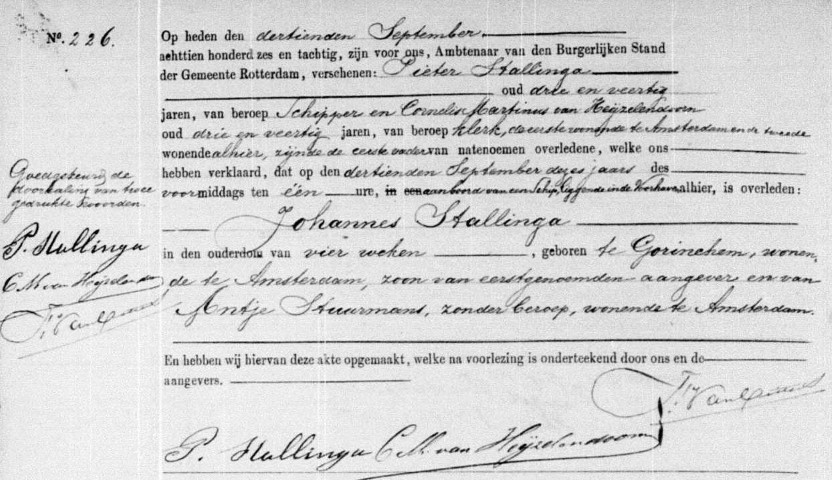 No. 226.
Op heden den dertienden September
achttien honderd zes en tachtig, zijn voor ons, Ambtenaar van den Burgerlijken Stand
der Gemeente Rotterdam, verschenen: Pieter Stallinga
oud drie en veertig
jaren, van beroep Schipper en Cornelis Martinus van Heijzelendoorn
oud drie en veertig jaren, van beroep klerk, de eerste wonende te Amsterdam en de tweede
wonende alhier, zijnde de eerste vader van natenoemen overledene, welke ons
hebben verklaard, dat op den dertienden September dezes jaars des
voormiddags ten één ure, in een aan boord van een Schip, liggende in de Voorhaven, alhier, is overleden:
Johannes Stallinga
in den ouderdom van vier weken, geboren te Gorinchem, wonen-
de te Amsterdam, zoon van eerstgenoemden aangever en van
Antje Stuurmans, zonder beroep, wonende te Amsterdam.
En hebben wij hiervan deze akte opgemaakt, welke na voorlezing is onderteekend door ons en de
aangevers.
P. Stallinga C.M. van Heijzelendoorn
Goedgekeurd de
doorhaling van twee
gedrukte woorden.
P. Stallinga
C.M. van Heijzelendoorn